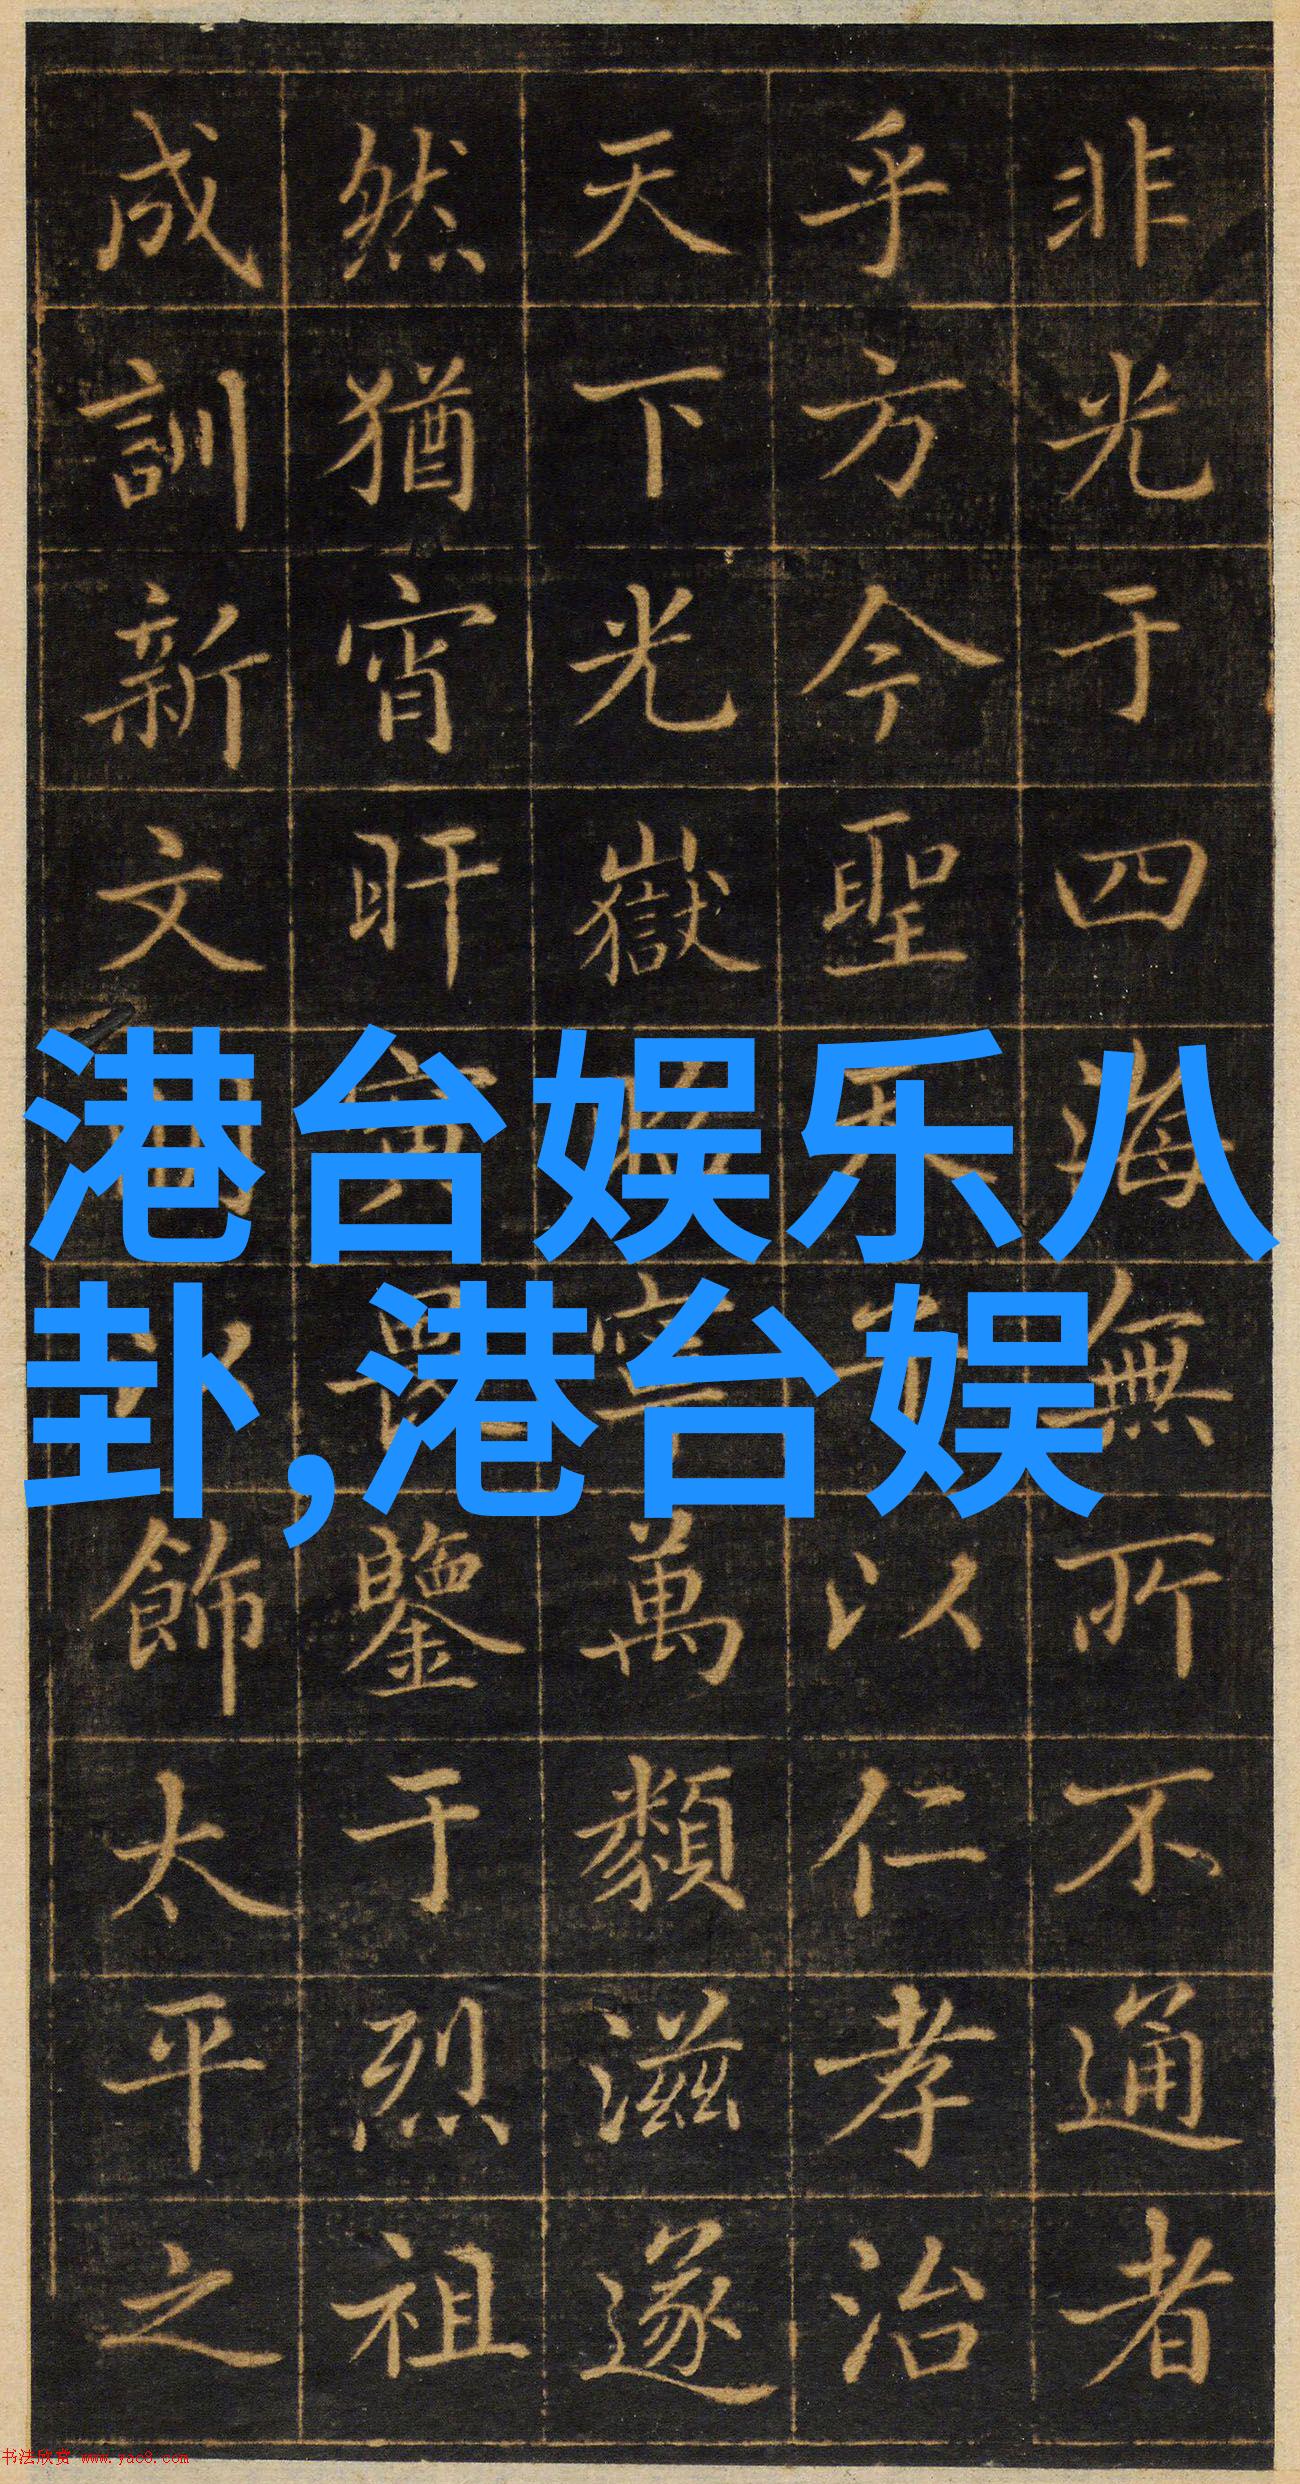 非光于四海無所不通者
乎方今聖天以仁孝治
天下光嶽萬類滋遂
然猶宵旰寅畏鑒于烈祖
成訓新文以飾太平之
港台娱乐八
卦,港台娱
书法欣赏 www.yac8.com